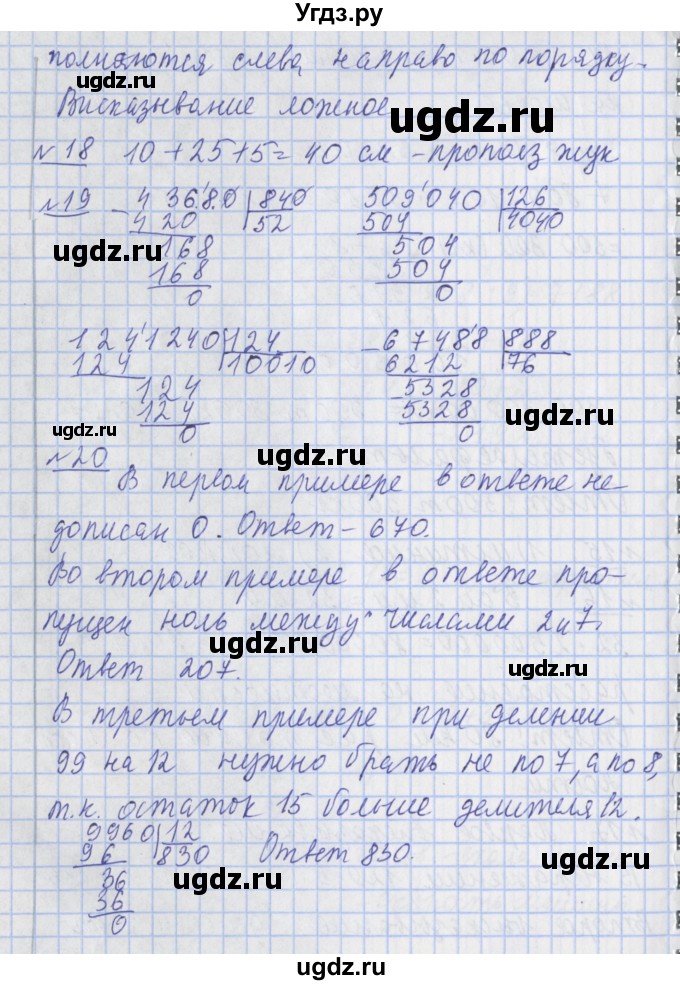 Угдз.ру
полняются слева направо по порядку.
Высказывание ложное
№18 10+25+5=40 см - прополз жук
№19 43680 840 509040 126
420 52 504 4040
168 504
168 504
0 0
1241240 124 67488 888
124 10010 6216 76
124 5328
124 5328
0 0
№20
В первом примере в ответе не-
дописан 0. Ответ - 670.
Во втором примере в ответе про-
пущен ноль между числами 2 и 7.
Ответ 207.
В третьем примере при делении
99 на 12 нужно брать не по 7, а по 8,
т.к. остаток 15 больше делителя 12.
9960 12
96 830 Ответ 830.
36
36
0
ugdz.ru